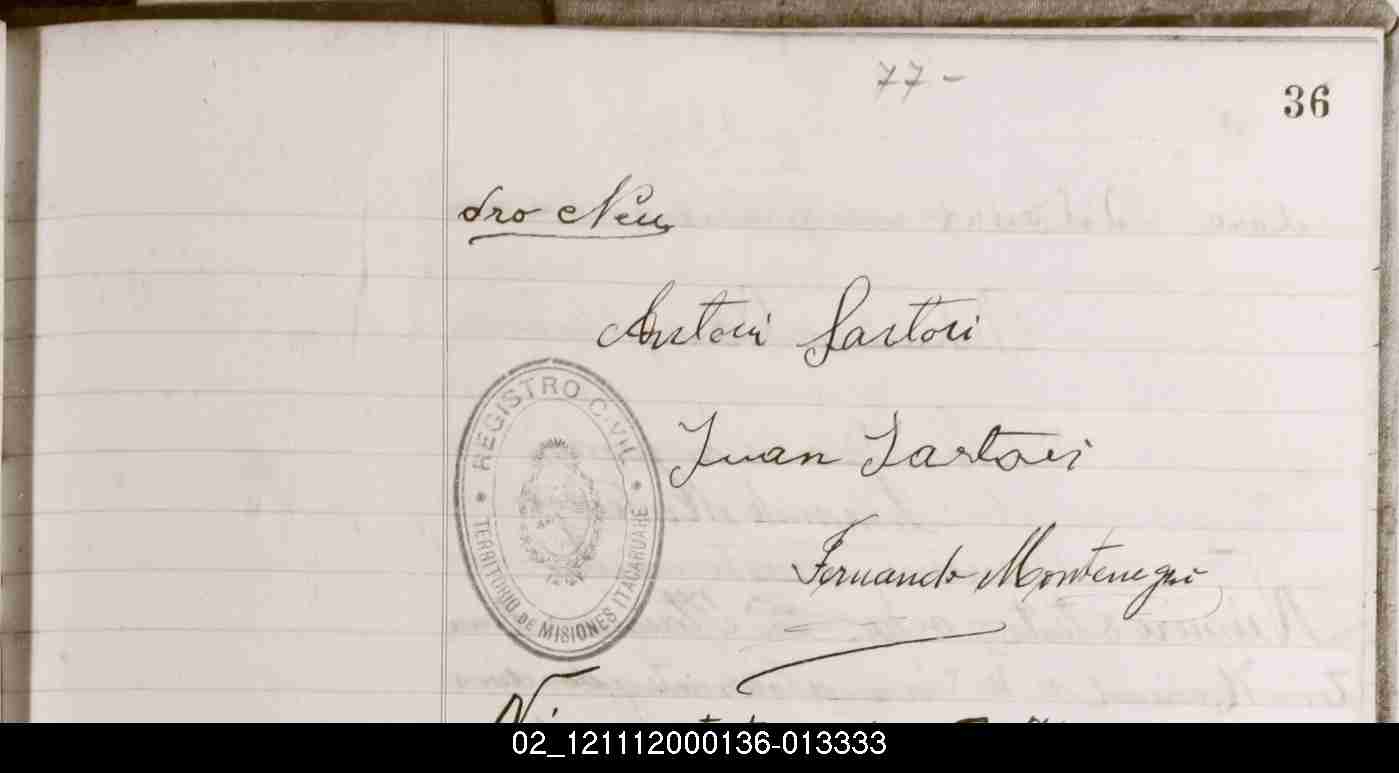 77-
36
dro Neu
Antoni Sartori
Juan Sartori
REGISTRO CIVIL
TERRITORIO DE MISIONES ITACARUARE
Fernando Montenegro
02_121112000136-013333